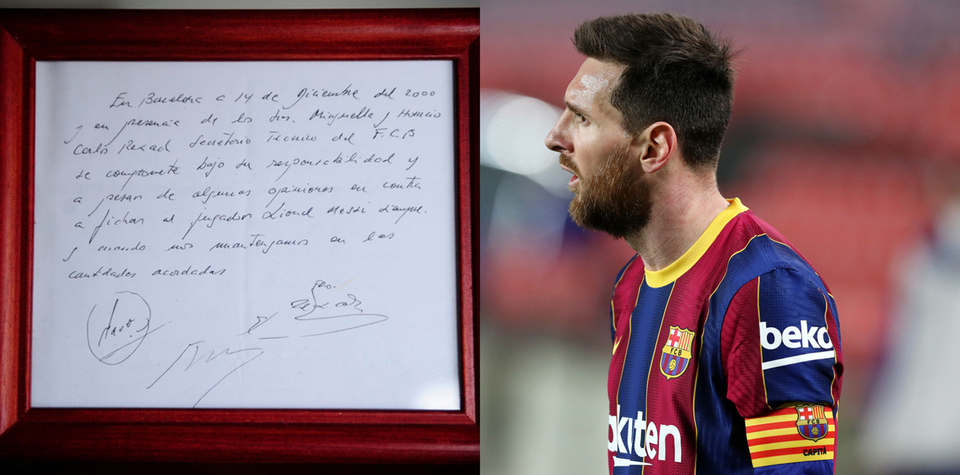 En Barcelona a 14 de Diciembre del 2000
y en presencia de los Srs. Minguella y Horacio
Carlos Rexach Secretario Técnico del F.C.B
se compromete bajo su responsabilidad y
a pesar de algunas opiniones en contra
a fichar al jugador Lionel Messi siempre
y cuando nos mantengamos en las
cantidades acordadas
beko
FCB
akuten
CAPITÀ